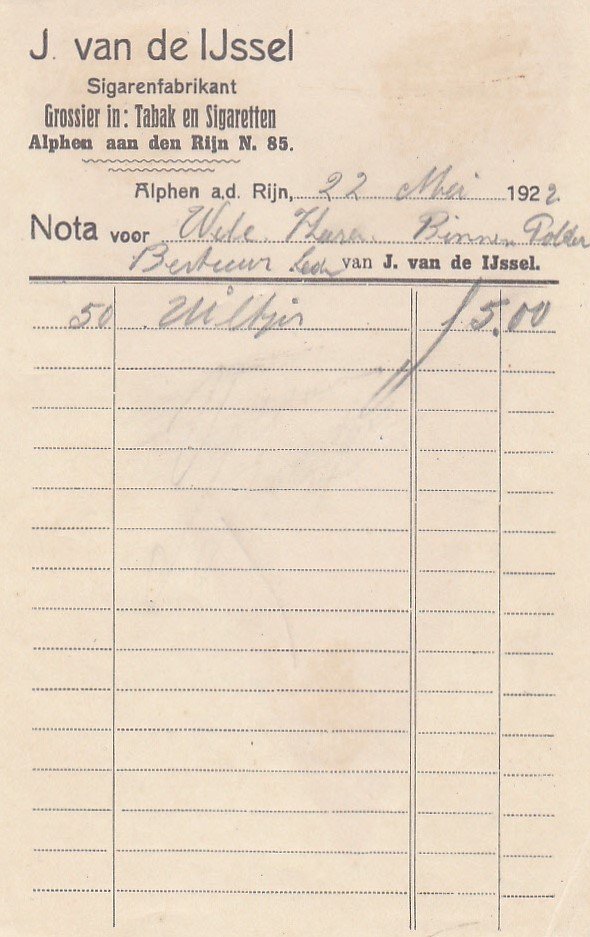 J. van de IJssel
Sigarenfabrikant
Grossier in: Tabak en Sigaretten
Alphen aan den Rijn N. 85.
Alphen a.d. Rijn, 22 Mei 1922
Nota voor Wele Heeren Binnen Polder
Bestuur van J. van de IJssel.
50 f 5.00